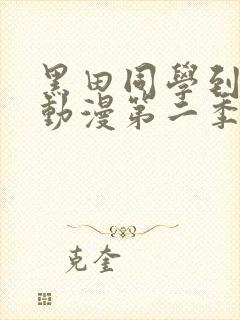 黑田同學到
動漫第二季
克奎